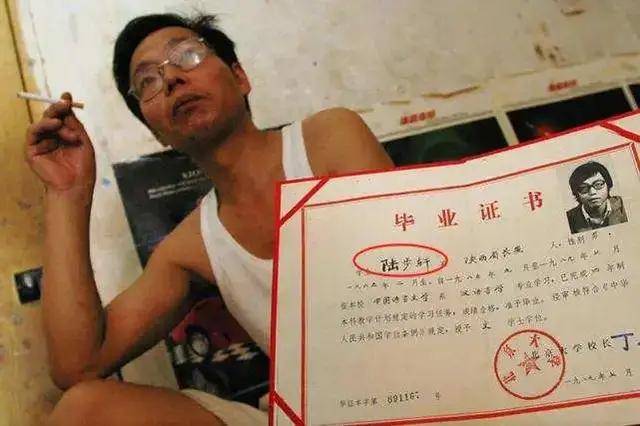 毕业证书
陆步轩
陕西省长安
人，性别 男，
一九六五年 月生，自一九八五年九月至一九八九年七月
在本校 中国语言文学 系 汉语言学 专业学习，已完成四年制
本科教学计划规定的学习任务，成绩合格，准予毕业。经审核符合《中华
人民共和国学位条例》规定，授予 文 学士学位。
北京大学校长 丁
一九八九年七月
毕证本字第 号